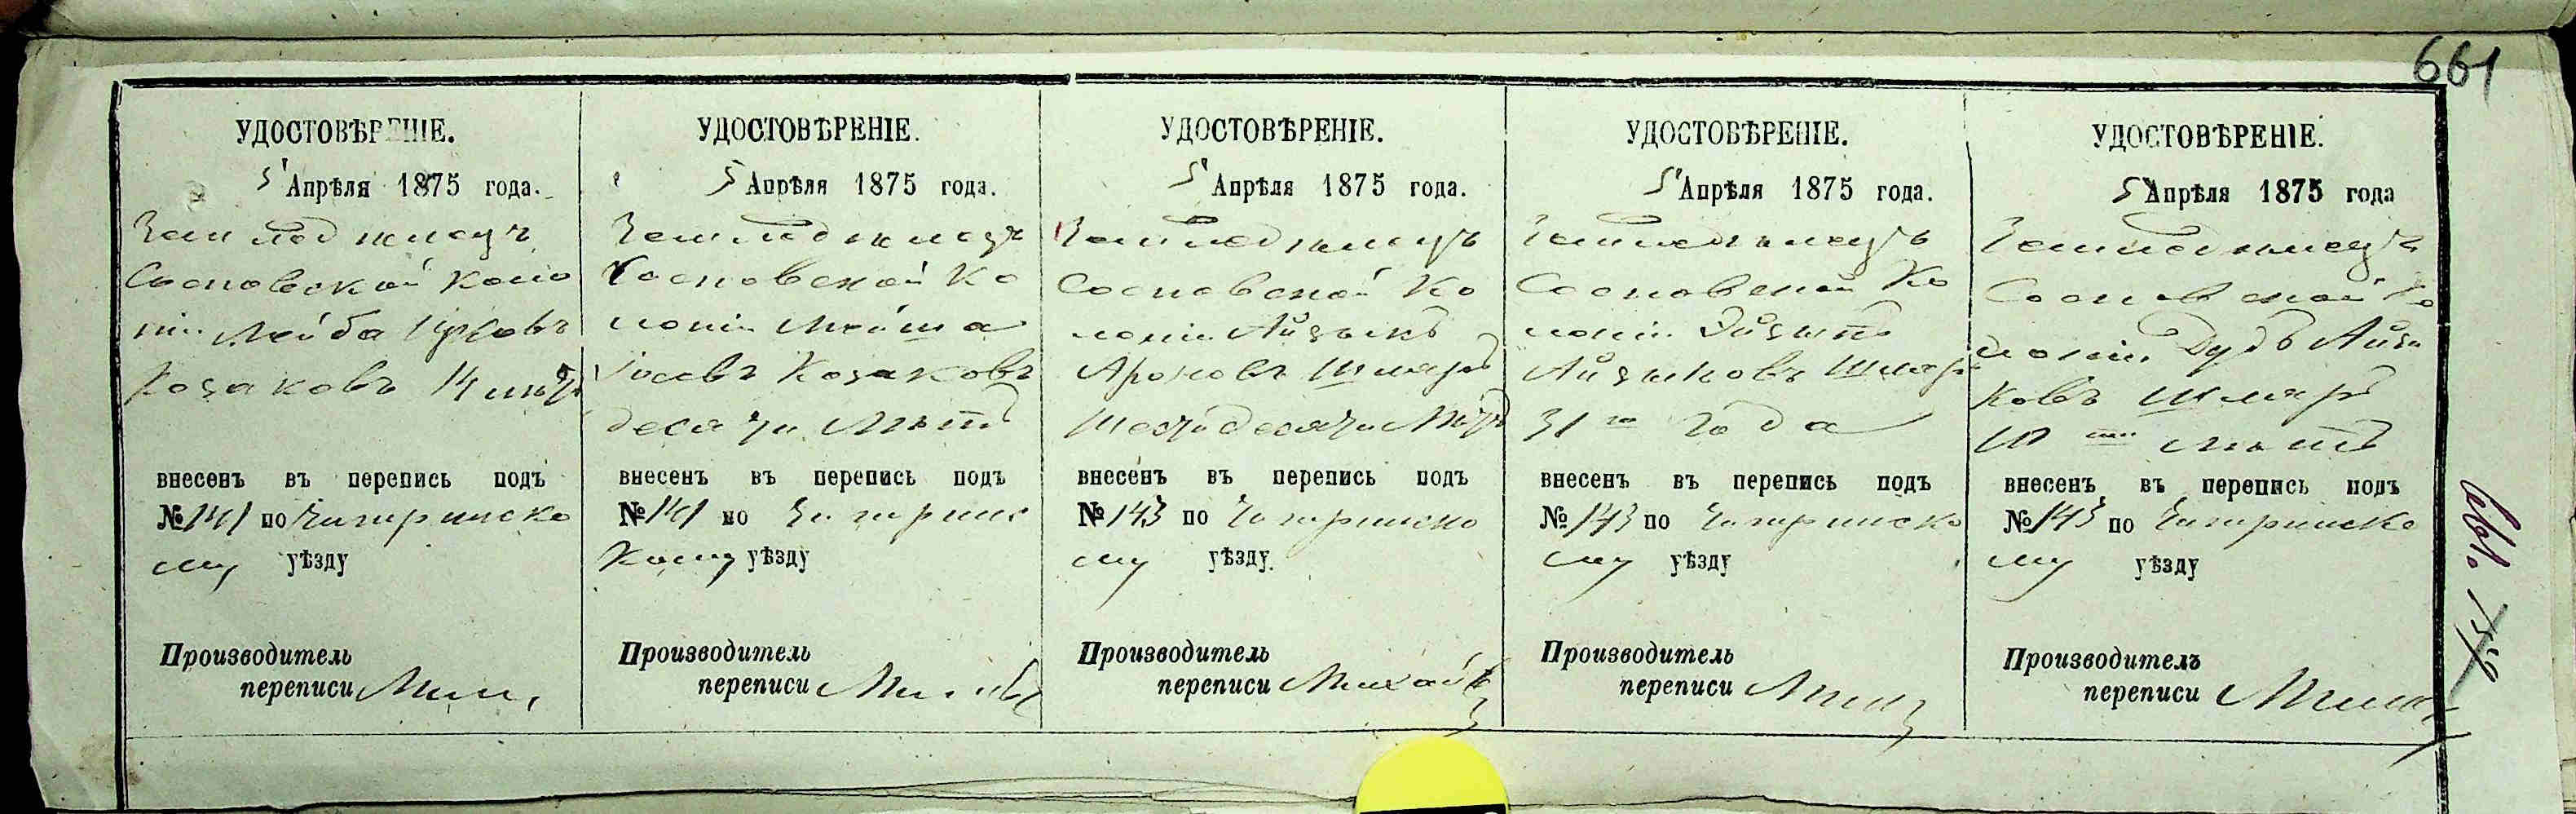 661
УДОСТОВѢРЕНІЕ.
5 Апрѣля 1875 года.
Земледѣлецъ
Сосновской коло
ніи Лейба
Козаковъ 14 лѣтъ
внесенъ въ перепись подъ
№ 141 по Чигиринско
му уѣзду
Производитель
переписи
УДОСТОВѢРЕНІЕ.
5 Апрѣля 1875 года.
Земледѣлецъ
Сосновской ко
лоніи
Козаковъ
десяти лѣтъ
внесенъ въ перепись подъ
№ 141 по Чигиринс
кому уѣзду
Производитель
переписи
УДОСТОВѢРЕНІЕ.
5 Апрѣля 1875 года.
Земледѣлецъ
Сосновской ко
лоніи Айзыкъ
Ароновъ Шляръ
Шестидесяти лѣтъ
внесенъ въ перепись подъ
№ 143 по Чигиринско
му уѣзду.
Производитель
переписи
УДОСТОВѢРЕНІЕ.
5 Апрѣля 1875 года.
Земледѣлецъ
Сосновской ко
лоніи
Айзыковъ Шляръ
31 го года
внесенъ въ перепись подъ
№ 143 по Чигиринско
му уѣзду
Производитель
переписи
УДОСТОВѢРЕНІЕ.
5 Апрѣля 1875 года
Земледѣлецъ
Сосновской ко
лоніи Дудъ Айзы
ковъ Шляръ
10 ти лѣтъ
внесенъ въ перепись подъ
№ 143 по Чигиринско
му уѣзду
Производитель
переписи
661.